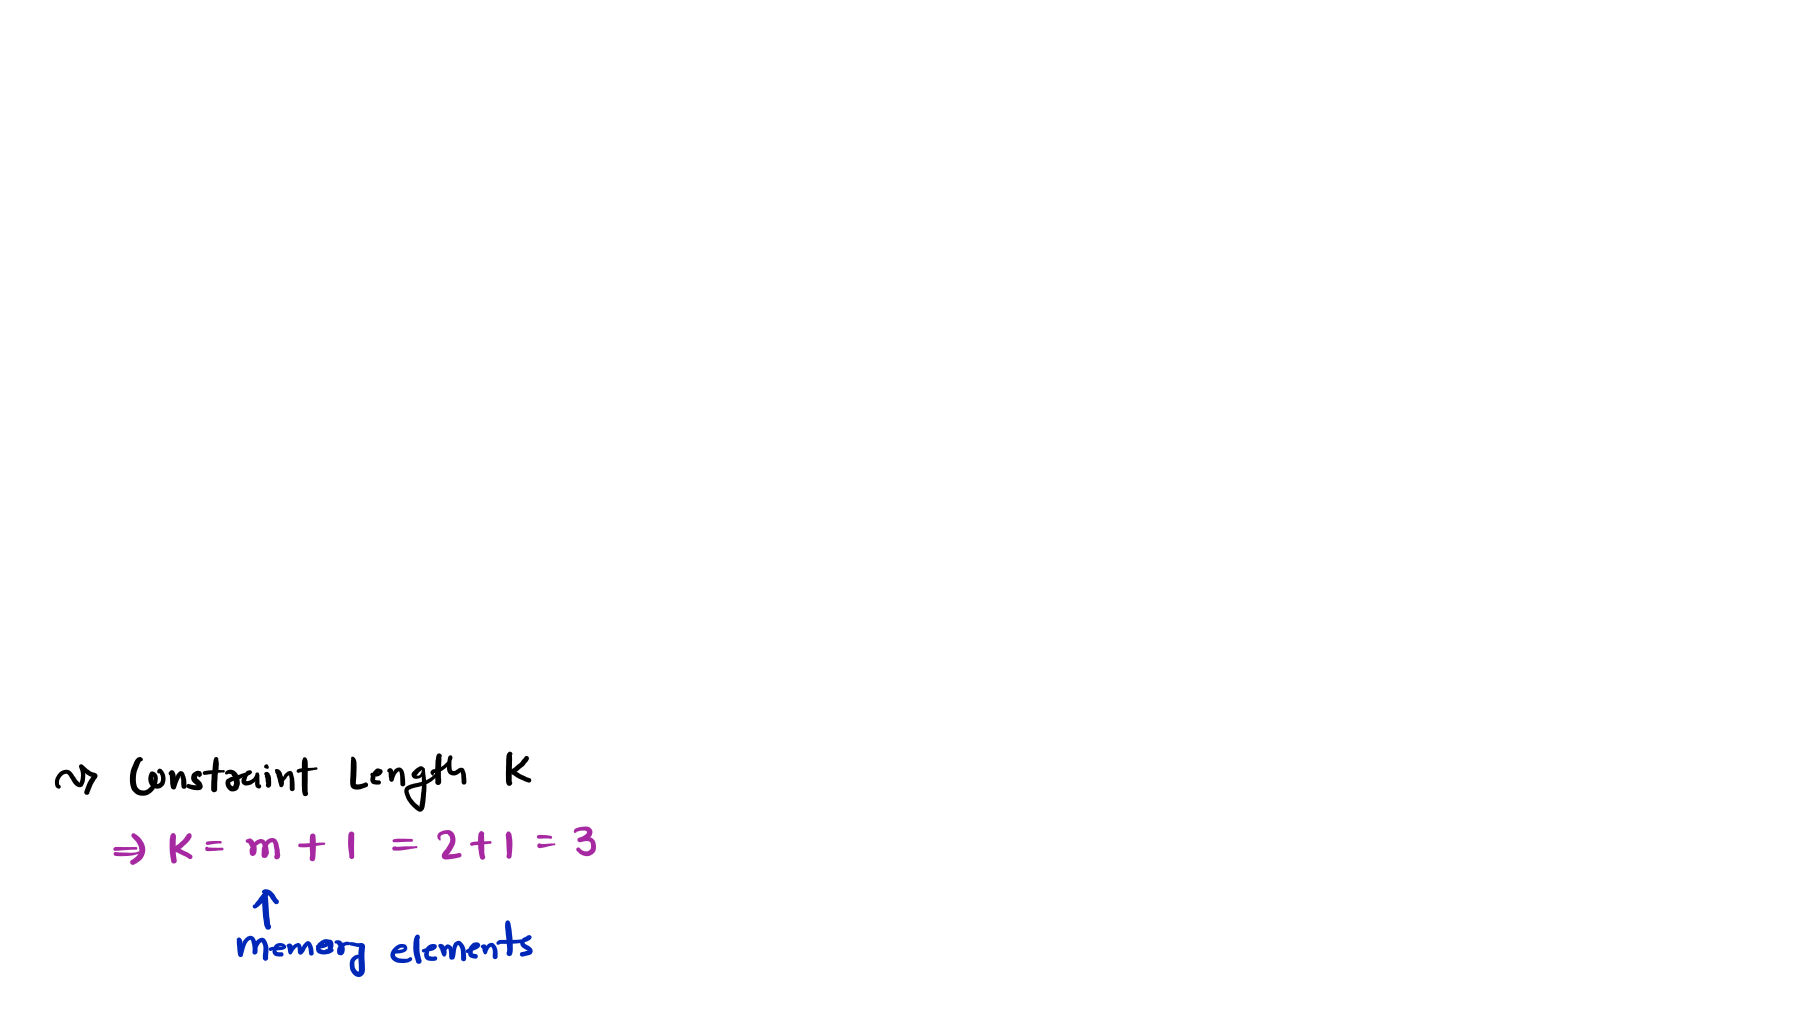 ~> Constraint Length K
⇒ K = m + 1 = 2 + 1 = 3
↑
memory elements